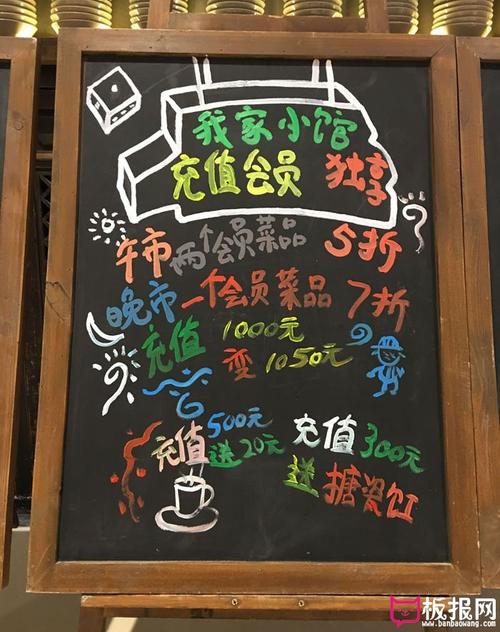 我家小馆
充值会员 独享
午市两个会员菜品 5折
晚市一个会员菜品 7折
充值 1000元
变1050元
充值500元
送20元
充值300元
送搪瓷缸
板报网
www.banbaowang.com